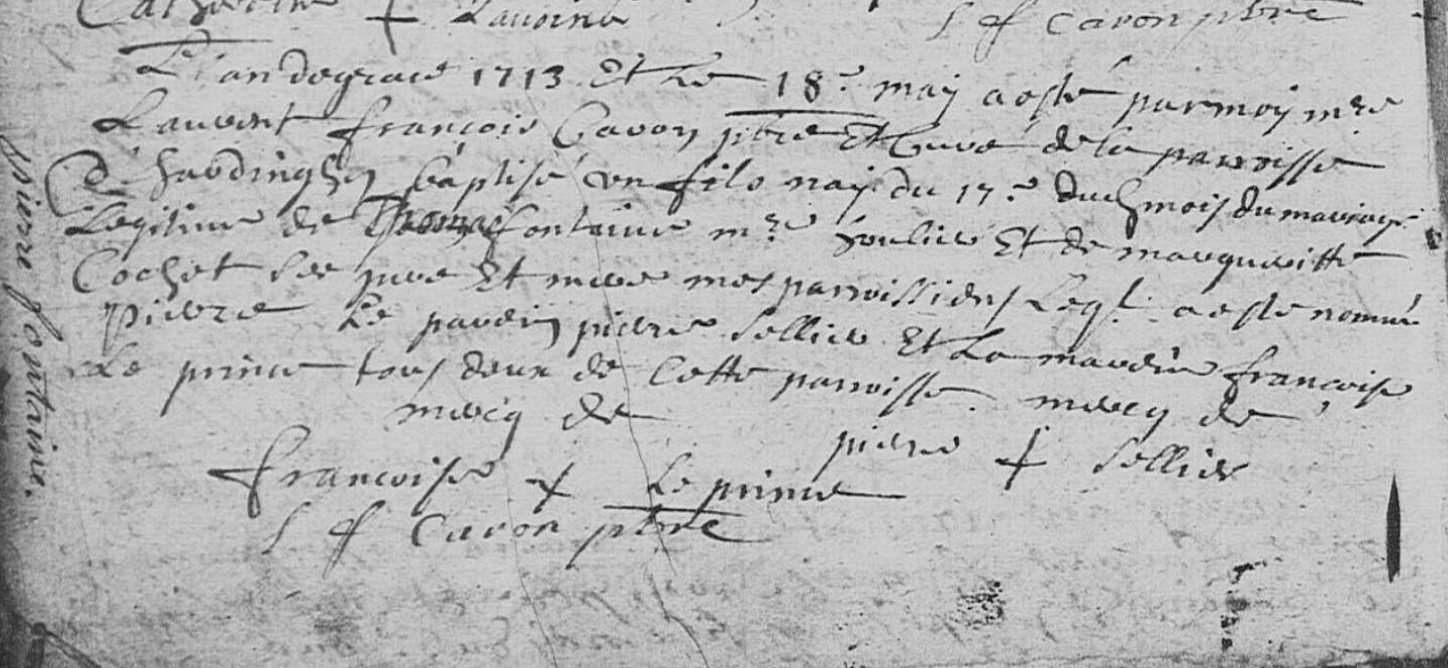 Catherine + Lavoine
L f Caron pbre
L'an de grace 1713 Et Le 18e may a esté par moy mre
Laurent françois Caron pbre Et Curé de la parroisse
d'hardinghen baptisé un fils nay du 17e dud mois du mariage
Legitime de Thomas fontaine mre houlier Et de margueritte
Cochet ses pere Et mere mes parroissiens Leql a esté nommé
pierre Le parein pierre Sellier Et La mareine francoise
Le prince tous deux de Cette parroisse. mercq de
mercq de pierre + Sellier
francoise + Le prince
L f Caron pbre
pierre fontaine.